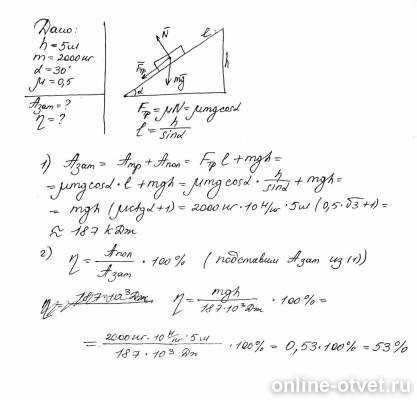 Дано:
h = 5м
m = 2000кг
α = 30°
μ = 0,5
Aзат = ?
η = ?
N
l
Fтр
mg
h
α
Fтр = μN = μmgcosα
l = h/sinα
1) Aзат = Aтр + Aпол = Fтр l + mgh =
= μmgcosα · l + mgh = μmgcosα · h/sinα + mgh =
= mgh (μctgα + 1) = 2000кг · 10 Н/кг · 5м (0,5 · √3 + 1) =
≈ 187 кДж
2) η = Aпол/Aзат · 100% (подставим Aзат из (1))
η = mgh/187·10³Дж · 100% =
= 2000кг · 10 Н/кг · 5м/187 · 10³ Дж · 100% = 0,53 · 100% = 53%
online-otvet.ru